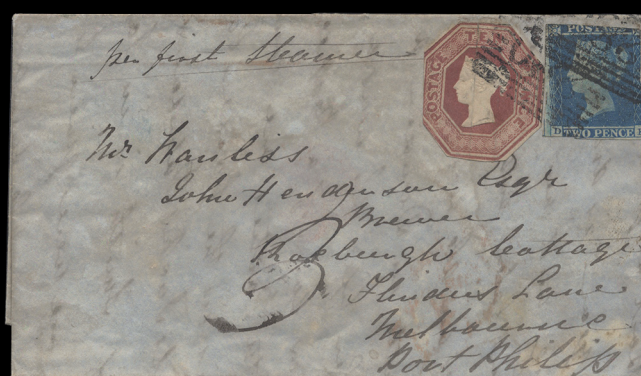 per first Steamer
POSTAGE TEN PENCE
POSTAGE
D TWO PENCE
Mr. Wanliss
John Henderson Esqr
Brewer
Roxburgh Cottage
3
Flinders Lane
Melbourne
Port Philip